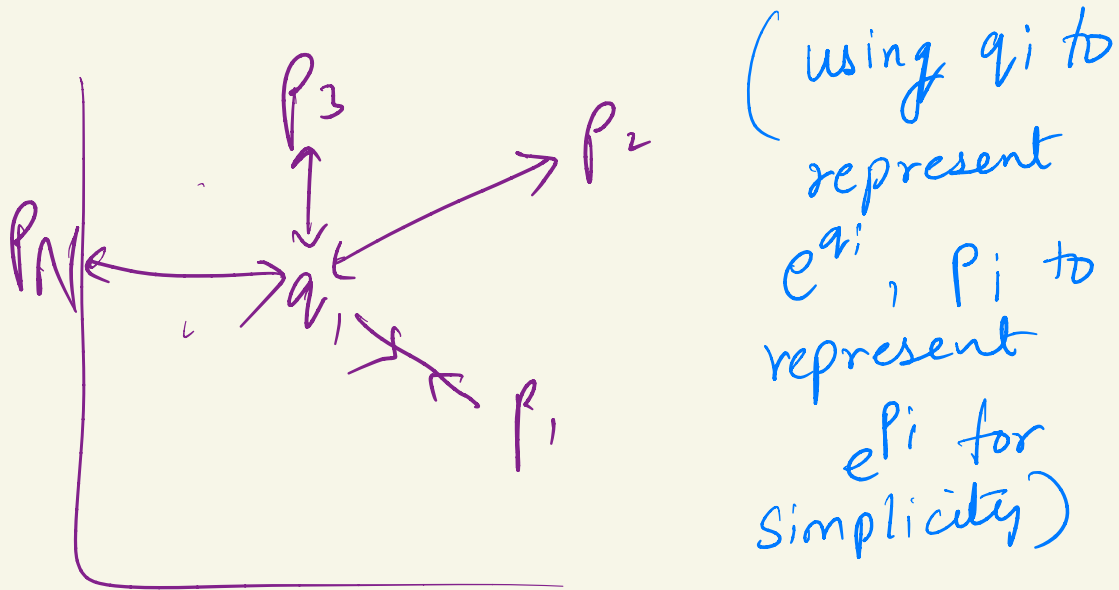 P3
P2
PN
q1
P1
(using qi to
represent
e^qi, Pi to
represent
e^Pi for
simplicity)